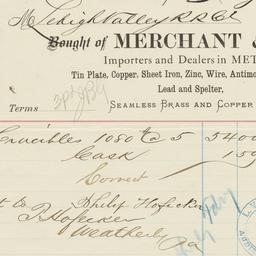 M Lehigh Valley R R Co
Bought of MERCHANT &
Importers and Dealers in MET
Tin Plate, Copper, Sheet Iron, Zinc, Wire, Antimo
Lead and Spelter,
Terms
SEAMLESS BRASS AND COPPER
Crucibles 1080 5 5400
Cask 150
Correct
Philip Hofecker
P Hofecker
Weatherly
Pa